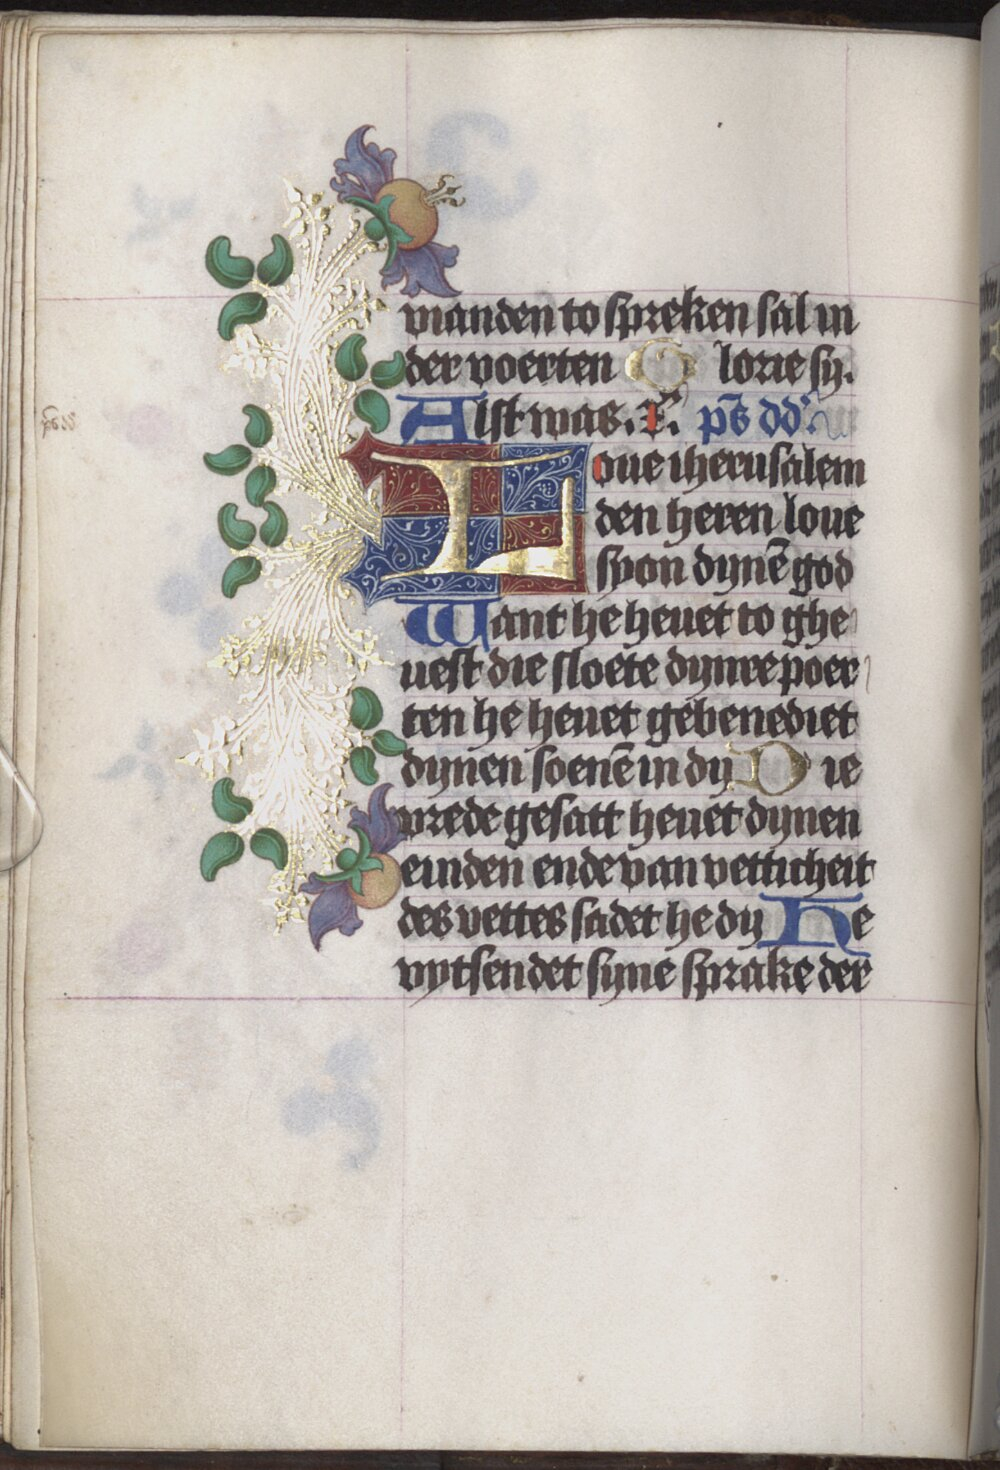 vianden to spreken sal in
der voerten Glorie sy.
Alst was. ps dd
Loue iherusalem
den heren loue
syon dynē god
Want he heuet to ghe
uest die sloete dynre poer
ten he heuet gebenediet
dynen soenē in dy Die
vrede gesatt heuet dynen
einden ende van vetticheit
des vettes sadet he dy He
vytsendet syne sprake der